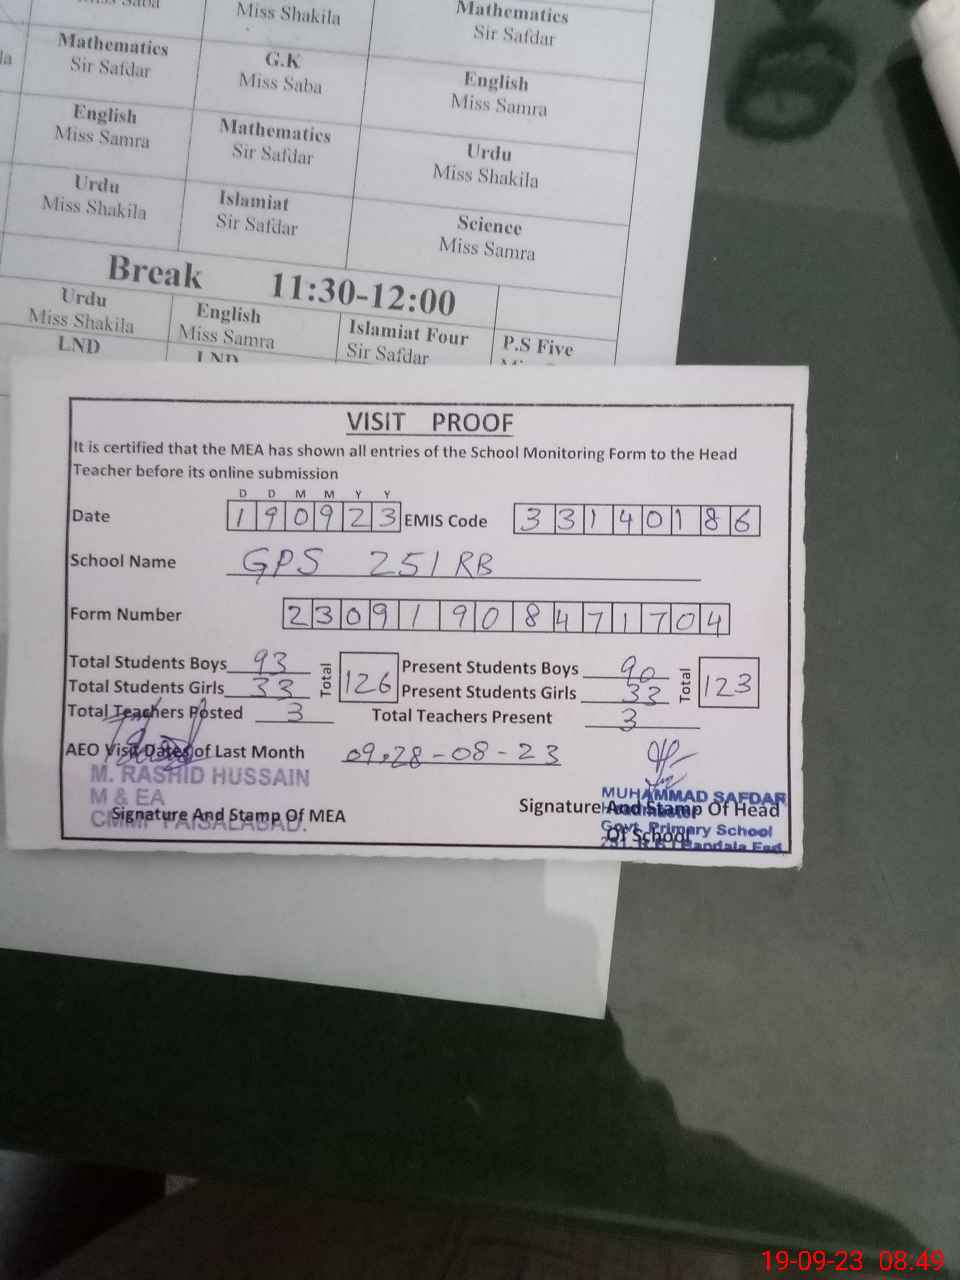 Miss Saba
Miss Shakila
Mathematics
Sir Safdar
Mathematics
Sir Safdar
G.K
Miss Saba
English
Miss Samra
English
Miss Samra
Mathematics
Sir Safdar
Urdu
Miss Shakila
Urdu
Miss Shakila
Islamiat
Sir Safdar
Science
Miss Samra
Break 11:30-12:00
Urdu
Miss Shakila
English
Miss Samra
Islamiat Four
Sir Safdar
P.S Five
LND
LND
VISIT PROOF
It is certified that the MEA has shown all entries of the School Monitoring Form to the Head
Teacher before its online submission
D D M M Y Y
Date 190923 EMIS Code 33140186
School Name GPS 251 RB
Form Number 23091908471704
Total Students Boys 93 Total 126 Present Students Boys 90 Total 123
Total Students Girls 33 Present Students Girls 33
Total Teachers Posted 3 Total Teachers Present 3
AEO Visit Dates of Last Month 09,28-08-23
M. RASHID HUSSAIN
M & EA
CMMF FAISALABAD.
Signature And Stamp Of MEA
MUHAMMAD SAFDAR
Headmaster
Signature And Stamp Of Head
Of School
Govt. Primary School
Bandala Fsd
19-09-23 08:49